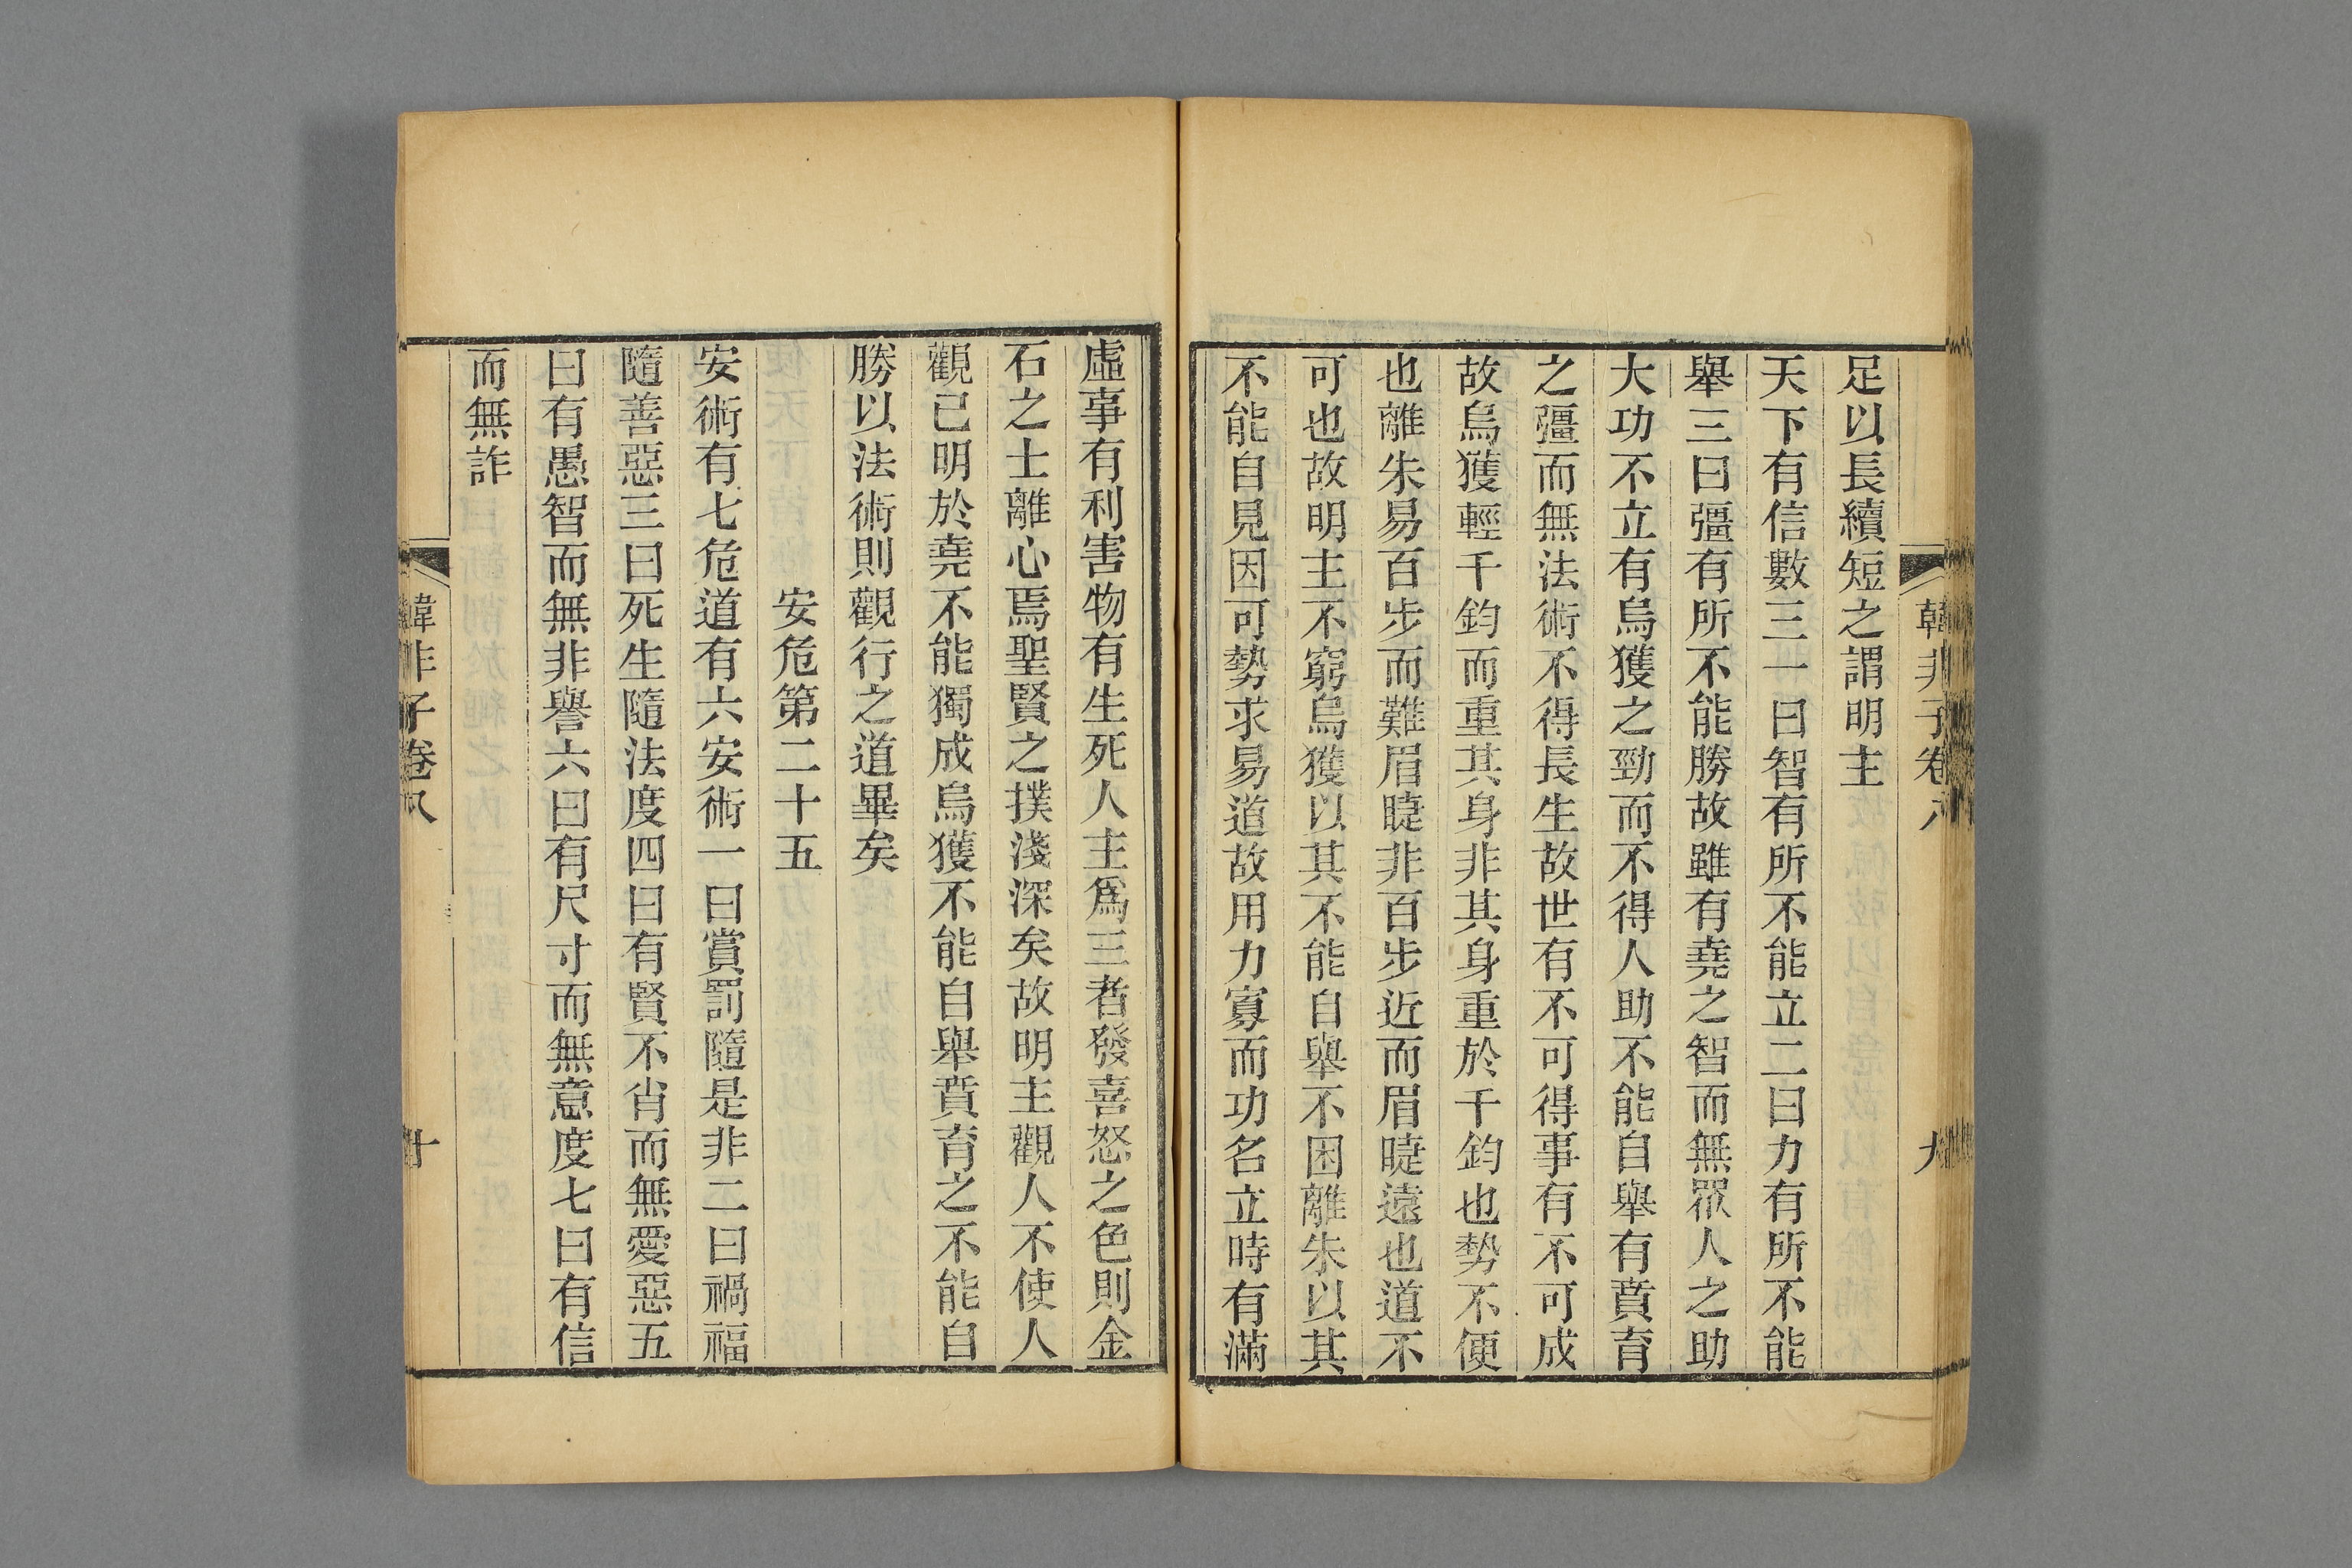 韓非子卷八
九
足以長續短之謂明主
天下有信數三一曰智有所不能立二曰力有所不能
舉三曰彊有所不能勝故雖有堯之智而無眾人之助
大功不立有烏獲之勁而不得人助不能自舉有賁育
之彊而無法術不得長生故世有不可得事有不可成
故烏獲輕千鈞而重其身非其身重於千鈞也勢不便
也離朱易百步而難眉睫非百步近而眉睫遠也道不
可也故明主不窮烏獲以其不能自舉不困離朱以其
不能自見因可勢求易道故用力寡而功名立時有滿
虛事有利害物有生死人主爲三者發喜怒之色則金
石之士離心焉聖賢之撲淺深矣故明主觀人不使人
觀己明於堯不能獨成烏獲不能自舉賁育之不能自
勝以法術則觀行之道畢矣
安危第二十五
安術有七危道有六安術一曰賞罰隨是非二曰禍福
隨善惡三曰死生隨法度四曰有賢不肖而無愛惡五
曰有愚智而無非譽六曰有尺寸而無意度七曰有信
而無詐
韓非子卷八
十